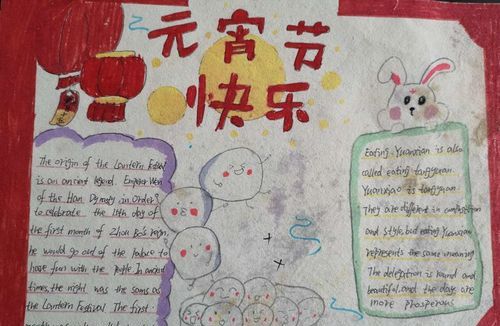 元宵节
快乐
The origin of the Lantern Festival
is an ancient legend. Emperor Wen
of the Han Dynasty in order
to celebrate the 15th day of
the first month of Zhou Bo's reign,
he would go out of the palace to
have fun with the people In ancient
times, the night was the same as
the Lantern Festival The first
Eating Yuanxiao is also
called eating tangyuan.
Yuanxiao is tangyuan
They are different in
and style, but eating Yuanxiao
represents the same meaning
The delegation is round and
beautiful, and the days are
more prosperous